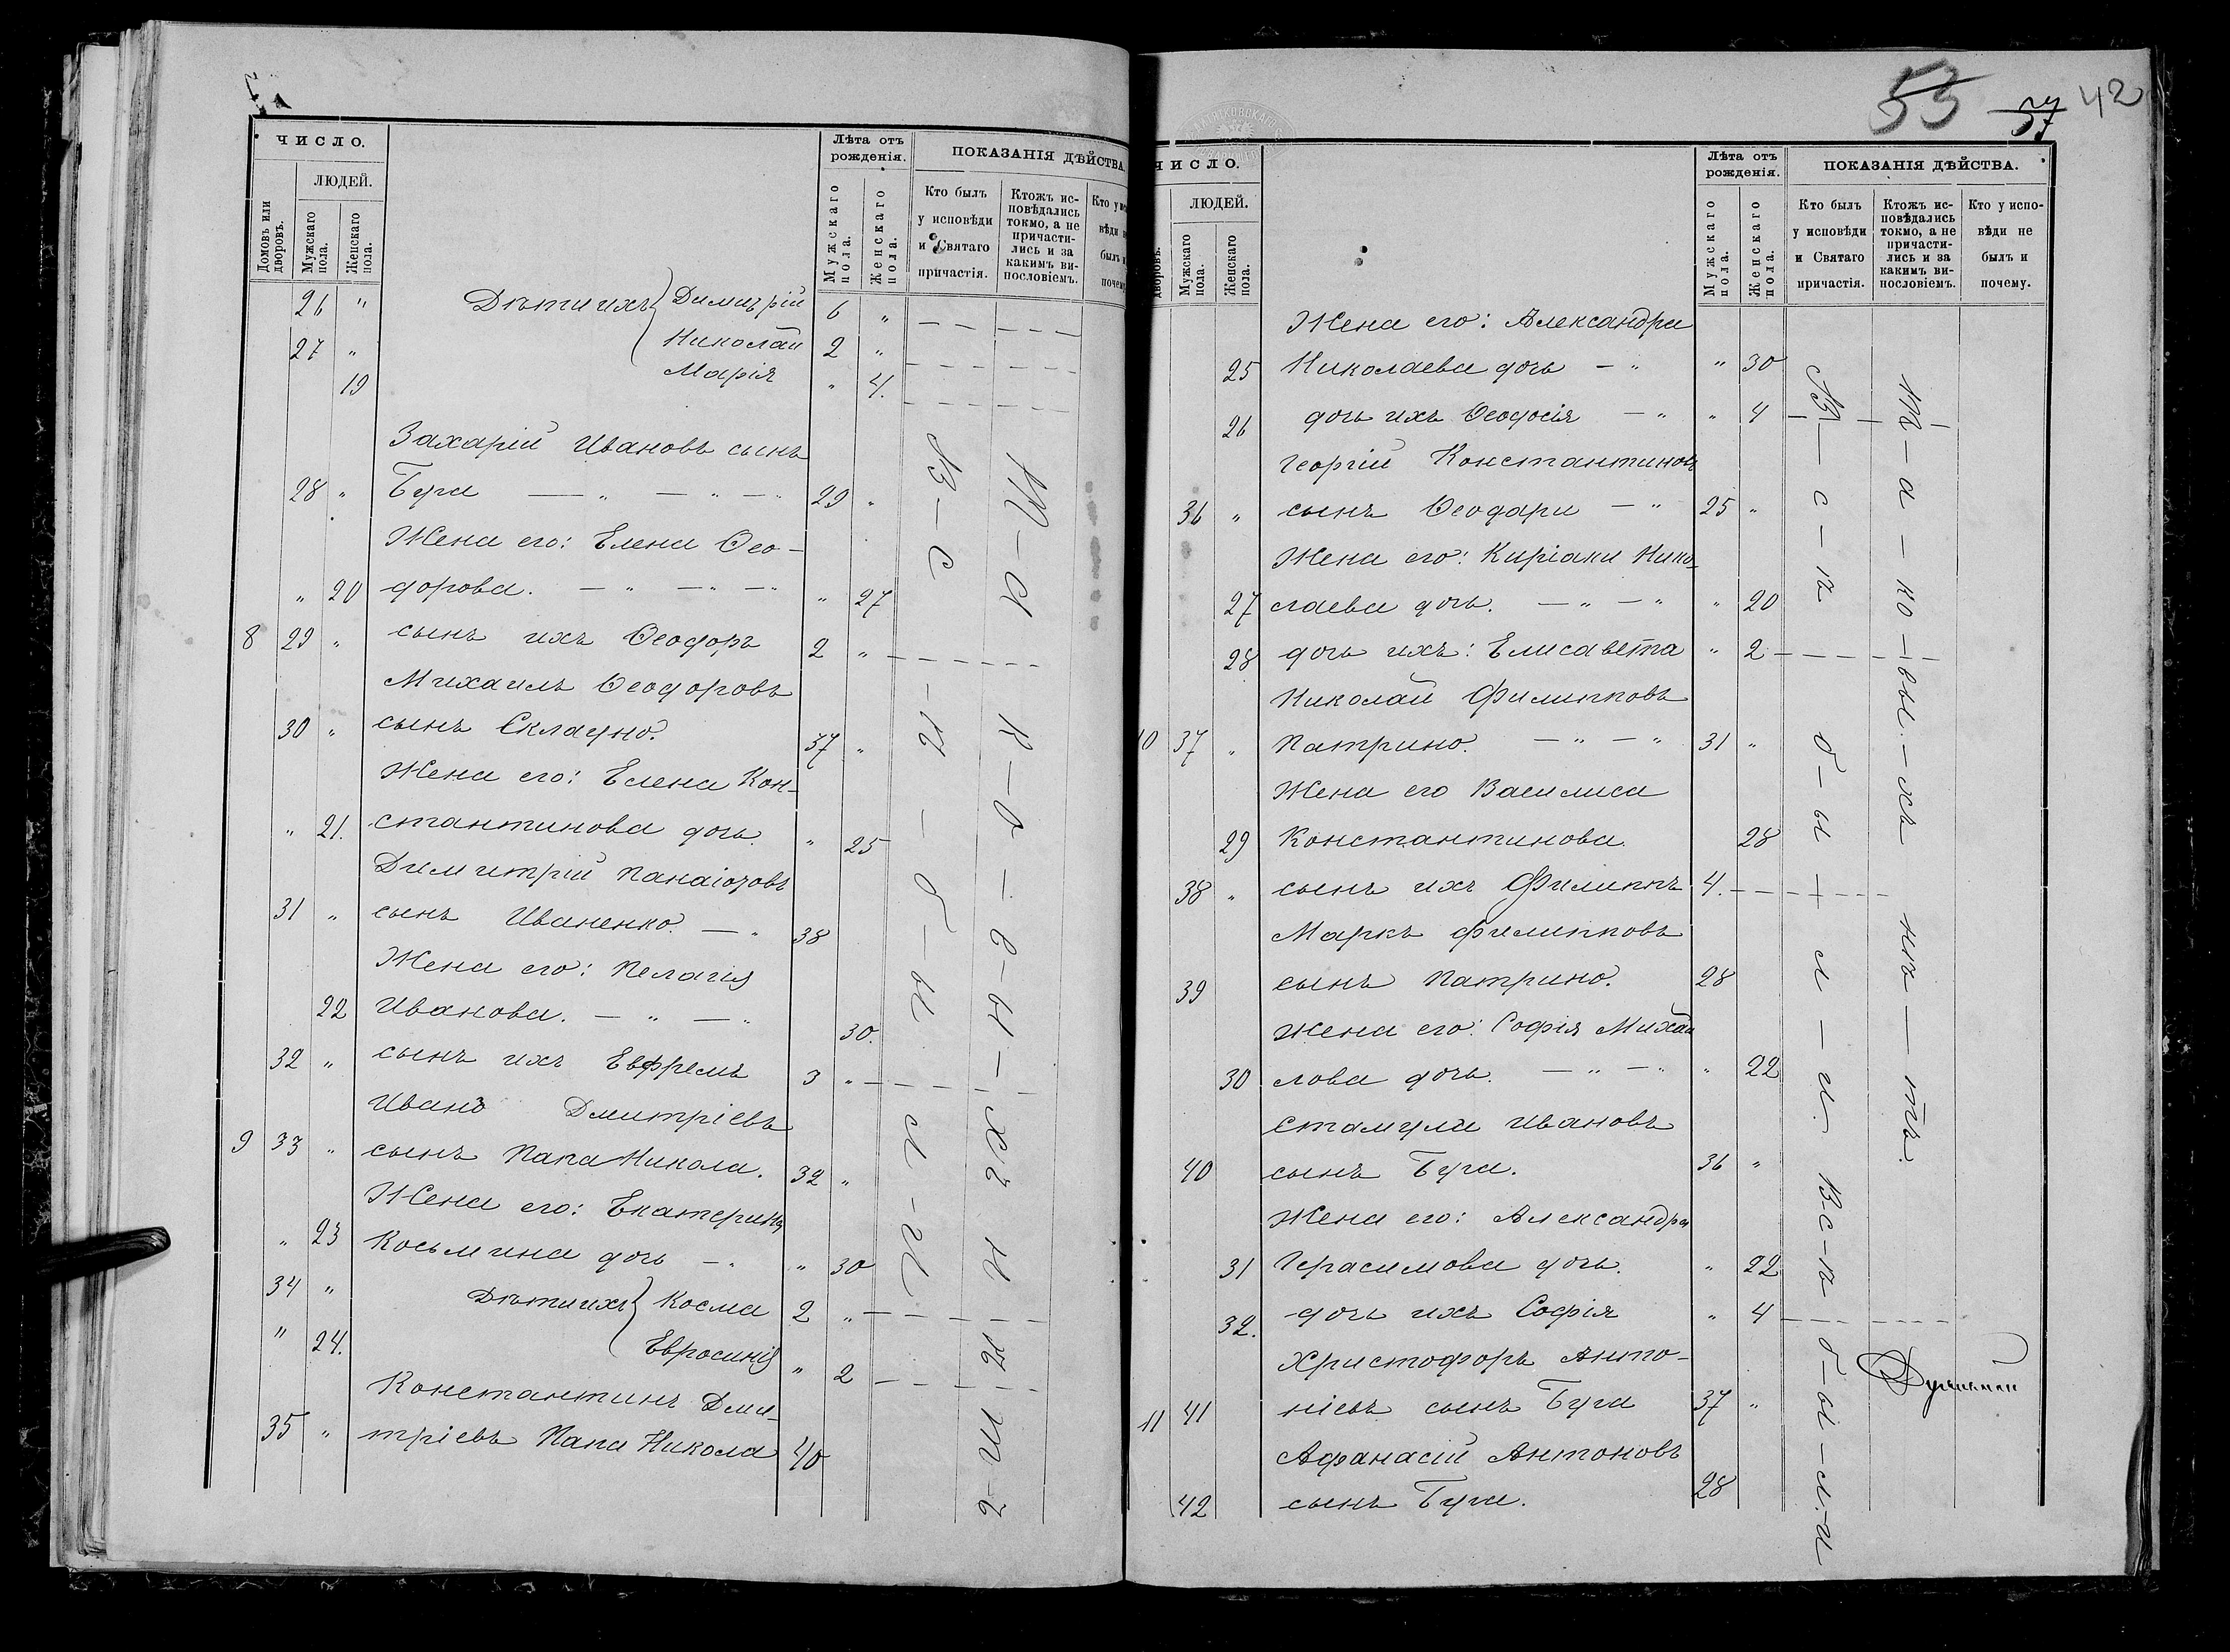 ЧИСЛО.
ЛЮДЕЙ.
Домовъ или дворовъ.
Мужскаго пола.
Женскаго пола.
Лѣта отъ рожденія.
Мужскаго пола.
Женскаго пола.
ПОКАЗАНІЯ ДѢЙСТВА
Кто былъ у исповѣди и Святаго причастія.
Ктожъ исповѣдались токмо, а не причастились и за какимъ виновословіемъ.
26 " Дѣти ихъ Димитрій 6 "
27 " Николай 2 "
19 Марія " 4.
Захарій Ивановъ сынъ
28 " Буга 29 "
Жена его: Елена Ѳео-
" 20 дорова. " 27
8 29 " сынъ ихъ Ѳеодоръ 2 "
Михаилъ Ѳеодоровъ
30 " сынъ Складно. 37 "
Жена его: Елена Кон-
" 21. стантинова дочь. " 25
Димитрій Панаіотовъ
31 " сынъ Иваненко 38
Жена его: Пелагія
22 Иванова. 30.
32 " сынъ ихъ Ефремъ 3 "
Иванъ Дмитріевъ
9 33 " сынъ Папа Никола. 32 "
Жена его: Екатерина
" 23 Косьмина дочь " 30
34 " Дѣти ихъ Косма 2 "
" 24. Евросинія " 2
Константинъ Дми-
35 " тріевъ Папа Никола 40
53 37 42
ЧИСЛО.
ЛЮДЕЙ.
дворовъ.
Мужскаго пола.
Женскаго пола.
Лѣта отъ рожденія.
Мужскаго пола.
Женскаго пола.
ПОКАЗАНІЯ ДѢЙСТВА.
Кто былъ у исповѣди и Святаго причастія.
Ктожъ исповѣдались токмо, а не причастились и за какимъ виновословіемъ.
Кто у исповѣди не былъ и почему.
Жена его: Александра
25 Николаева дочь " 30
26 дочь ихъ Ѳеодосія " 4
Георгій Константиновъ
36 " сынъ Ѳеодори 25 "
Жена его: Киріаки Нико-
27 лаева дочь. " 20
28 дочь ихъ: Елисавета " 2
Николай Филипповъ
10 37 " Патрино. 31 "
Жена его Василиса
29 Константинова. 28
38 " сынъ ихъ Филиппъ 4.
Маркъ Филипповъ
39 сынъ Патрино. 28
Жена его: Софія Михаи
30 лова дочь. " 22
Стамули Ивановъ
40 сынъ Буга. 36 "
Жена его: Александра
31 Герасимова дочь. " 22
32. дочь ихъ Софія " 4
Христофоръ Анто-
11 41 ніевъ сынъ Буга 37 "
Афанасій Антоновъ
42 сынъ Буга. 28